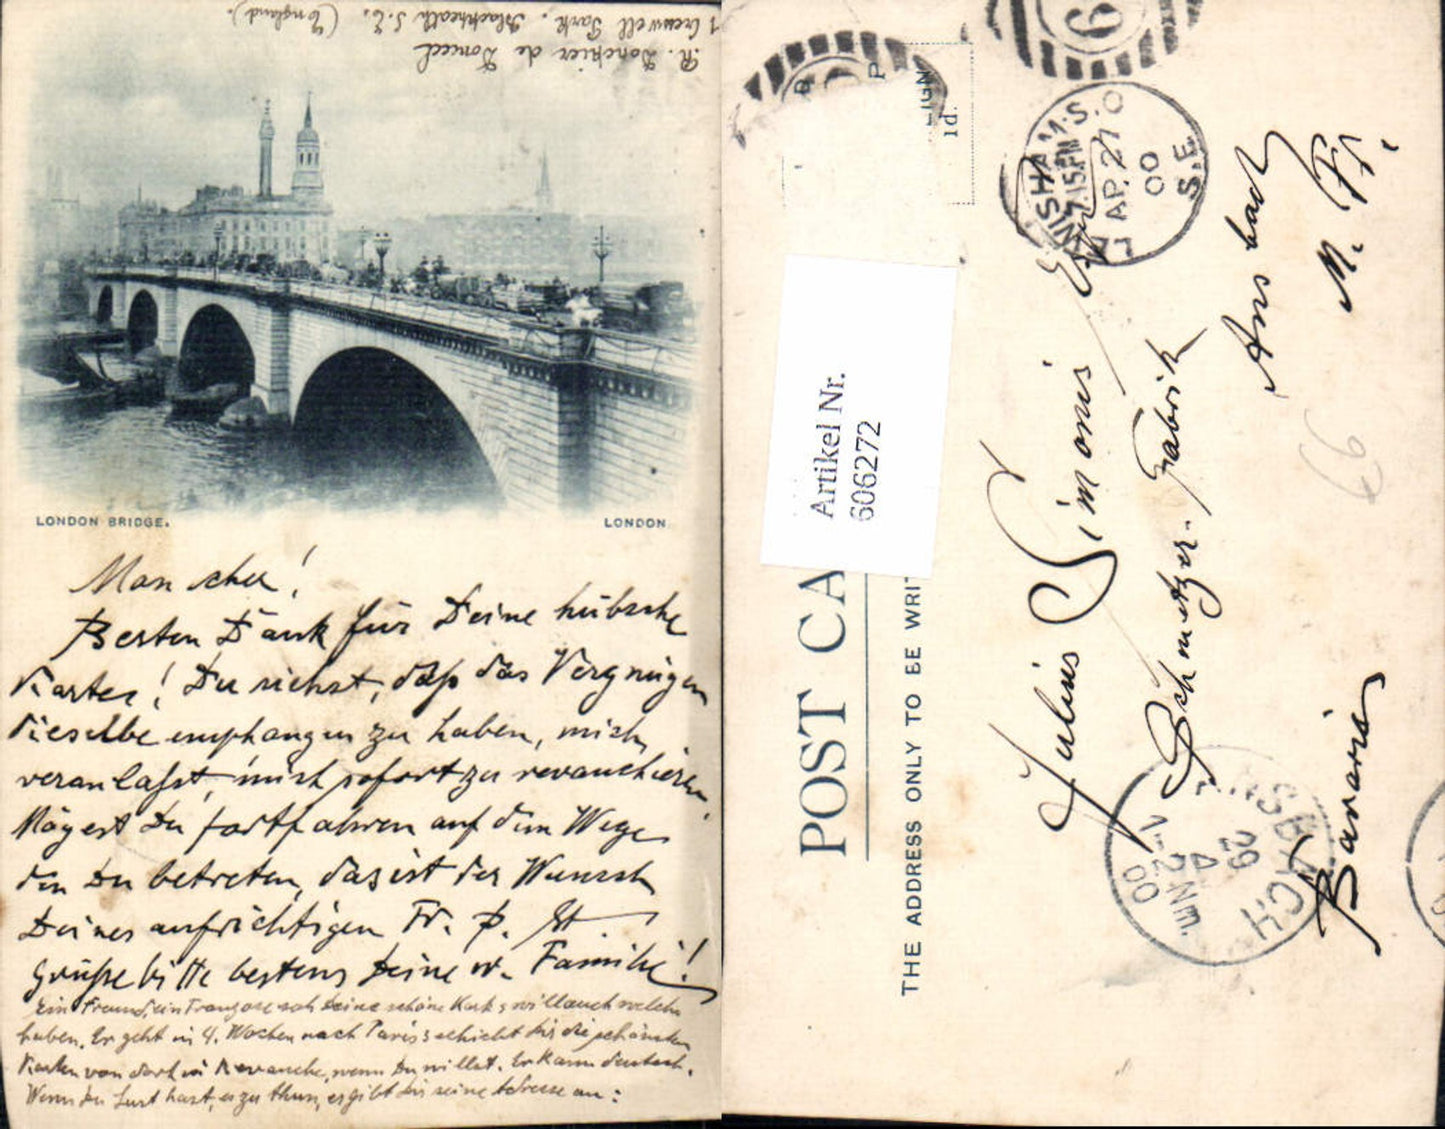 R. Donckier de Donceel
1 Cresswell Park. Blackheath S.E. (England).
LONDON BRIDGE.
LONDON
Mon cher!
Besten Dank für Deine hübsche
Karte! Du siehst, daß das Vergnügen
dieselbe empfangen zu haben, mich
veranlaßt, mich sofort zu revanchieren.
Mögest Du fortfahren auf dem Wege
den Du betreten, das ist der Wunsch
Deines aufrichtigen Fr. p. St.
Grüße bitte bestens Deine w. Familie!
Ein Freund, ein Franzose sah Deine schöne Karte & will auch welche
haben. Er geht in 4 Wochen nach Paris & schickt Dir die schönsten
Karten von dort in Revanche, wenn Du willst. Er kann deutsch.
Wenn Du Lust hast, es zu thun, er gibt Dir seine Adresse an:
POST CA
THE ADDRESS ONLY TO BE WRIT
Artikel Nr.
606272
EIGN
1d.
6
WISHAM.S.O
7.15PM
AP.27
00
S.E.
77
Julius Simonis
Schmutzer-Fabrik
Ansbach
M. Fr.
Bavaria
ANSBACH
29
4
1-2NM.
00